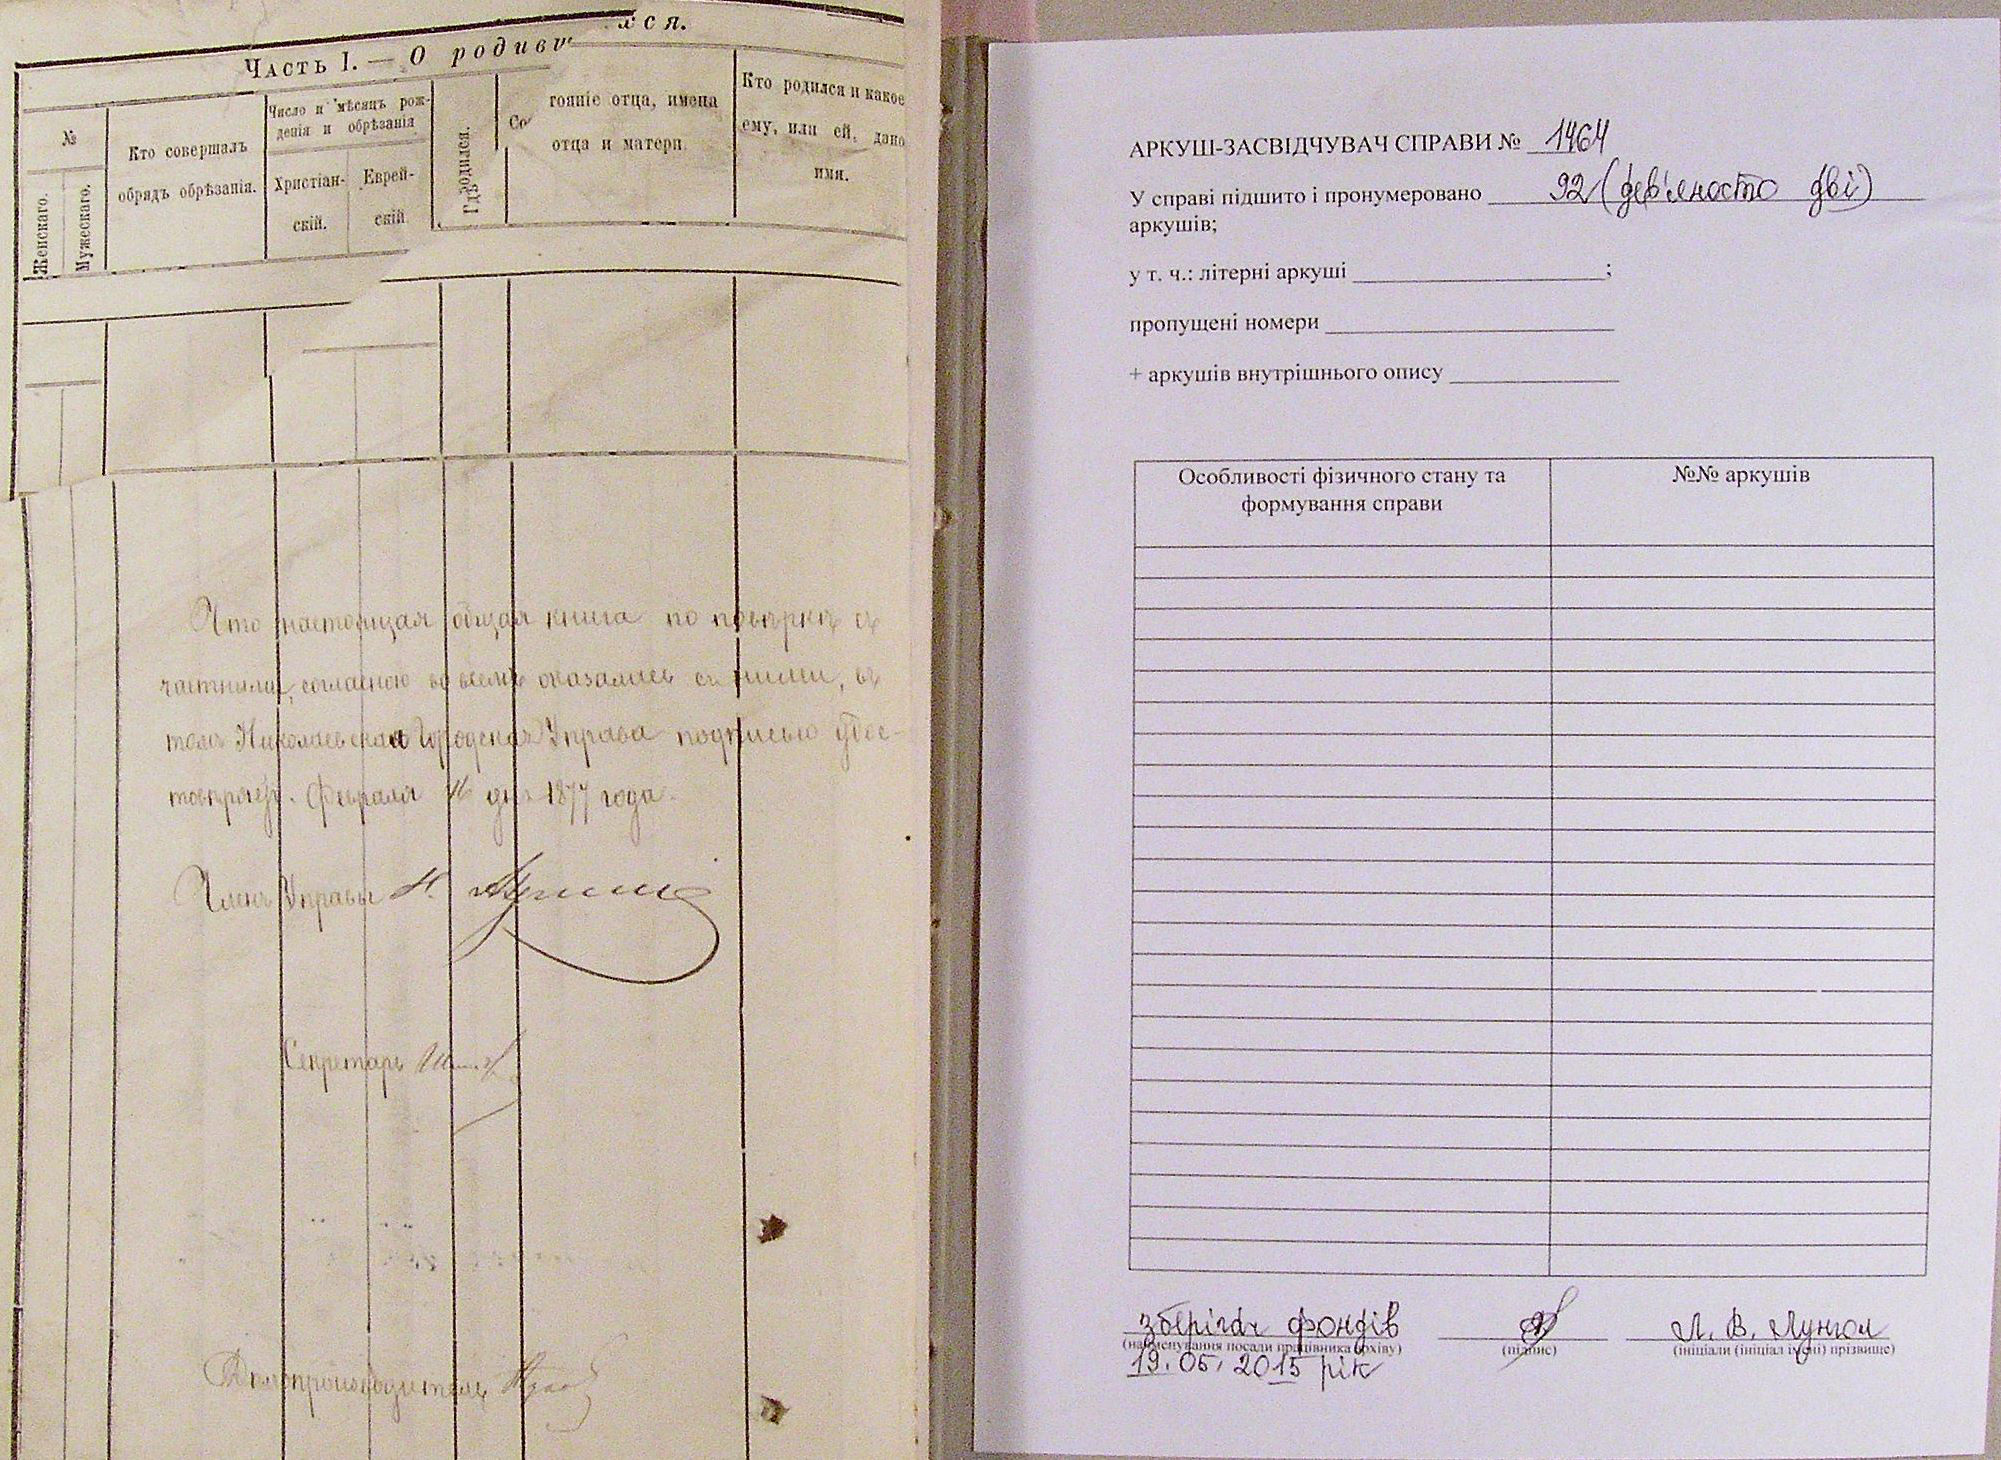 Часть I. — О родивш
хся.
№
Женскаго.
Мужескаго.
Кто совершалъ
обрядъ обрѣзанія.
Число и мѣсяцъ рож-
денія и обрѣзанія
Христіан-
скій.
Еврей-
скій
Гдѣ родился.
Со
тояніе отца, имена
отца и матери.
Кто родился и какое
ему, или ей, дано
имя.
Что настоящая общая книга по повѣркѣ съ
частными, согласною во всемъ оказалась съ ними, въ
томъ Николаевская Городская Управа подписью удос-
товѣряетъ. Февраля 16 дня 1877 года.
Членъ Управы Н.
Секретарь
Дѣлопроизводитель
АРКУШ-ЗАСВІДЧУВАЧ СПРАВИ № 1464
У справі підшито і пронумеровано 92 (дев'яносто дві)
аркушів;
у т. ч.: літерні аркуші ;
пропущені номери
+ аркушів внутрішнього опису
Особливості фізичного стану та
формування справи
№№ аркушів
зберігач фондів
Л. В. Лунгол
(найменування посади працівника архіву)
(підпис)
(ініціали (ініціал імені) прізвище)
19.05.2015 рік